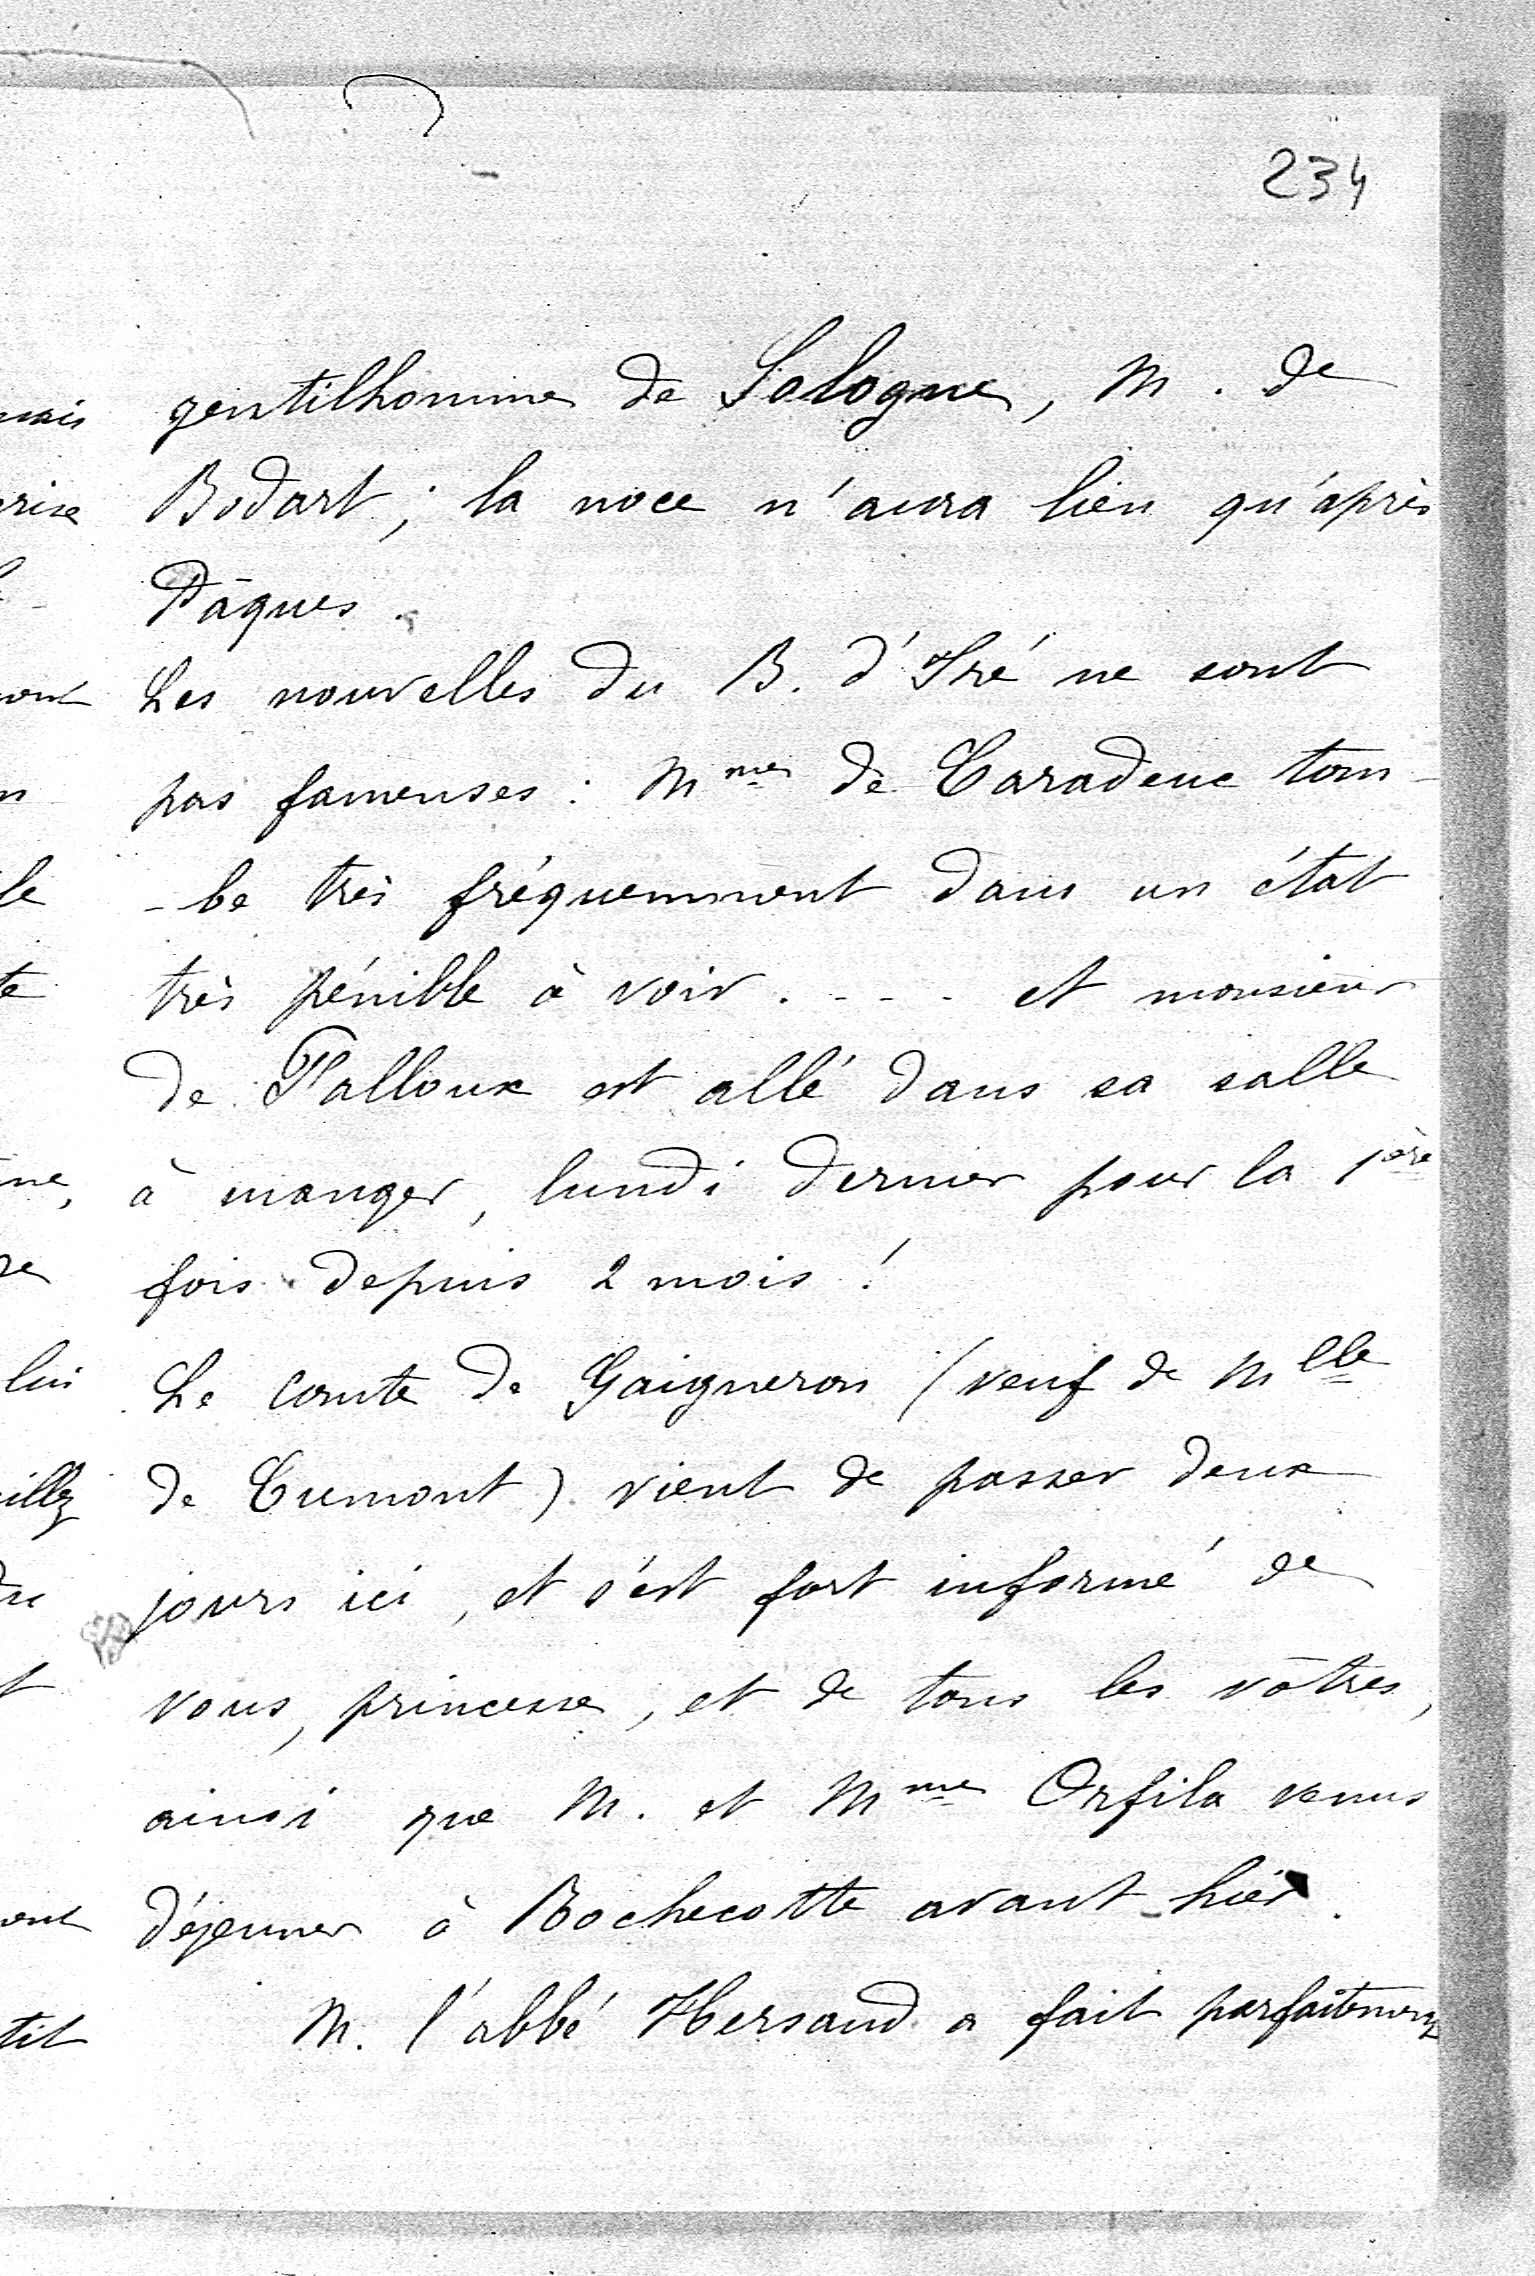 234
gentilhomme de Sologne, M. de
Bodart ; la noce n'aura lieu qu'après
Pâques.
Les nouvelles du B. d'Iré ne sont
pas fameuses : Mme de Caradeuc tom-
-be très fréquemment dans un état
très pénible à voir. - - - et monsieur
de Falloux est allé dans sa salle
à manger, lundi dernier pour la 1ère
fois depuis 2 mois !
Le comte de Gaigneron (veuf de Mlle
de Cumont) vient de passer deux
jours ici, et s'est fort informé de
vous, princesse, et de tous les vôtres,
ainsi que M. et Mme Orfila venus
déjeuner à Rochecotte avant-hier.
M. l'abbé Hersaud a fait parfaitement